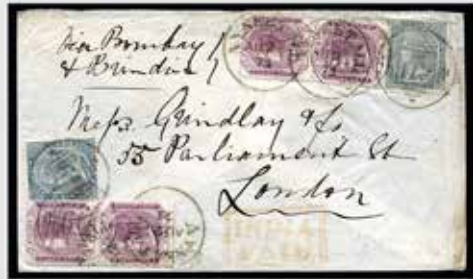 Via Bombay
& Brindisi
Messrs Grindlay & Co
55 Parliament St
London
INDIA
PAID